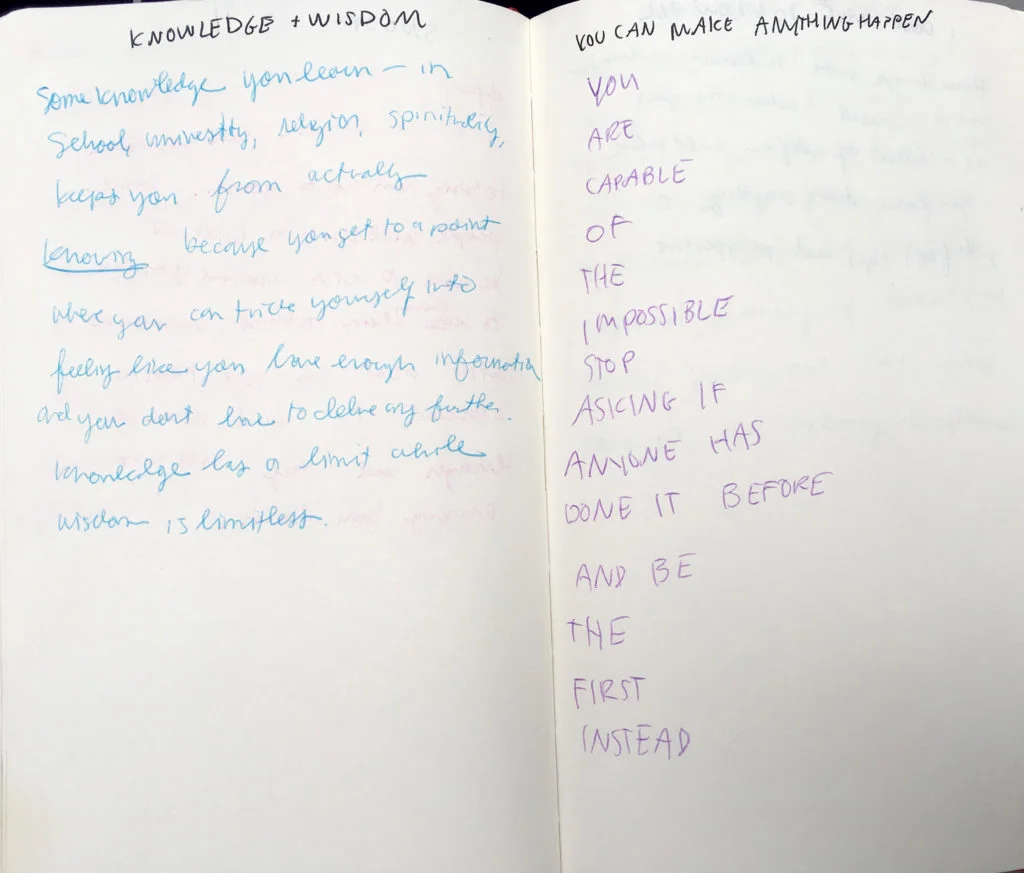 KNOWLEDGE + WISDOM
Some knowledge you learn – in
School, university, religion, spirituality,
keeps you from actually
knowing because you get to a point
where you can trick yourself into
feeling like you have enough information
and you don't have to delve any further.
Knowledge has a limit while
wisdom is limitless.
YOU CAN MAKE ANYTHING HAPPEN
YOU
ARE
CAPABLE
OF
THE
IMPOSSIBLE
STOP
ASKING IF
ANYONE HAS
DONE IT BEFORE
AND BE
THE
FIRST
INSTEAD